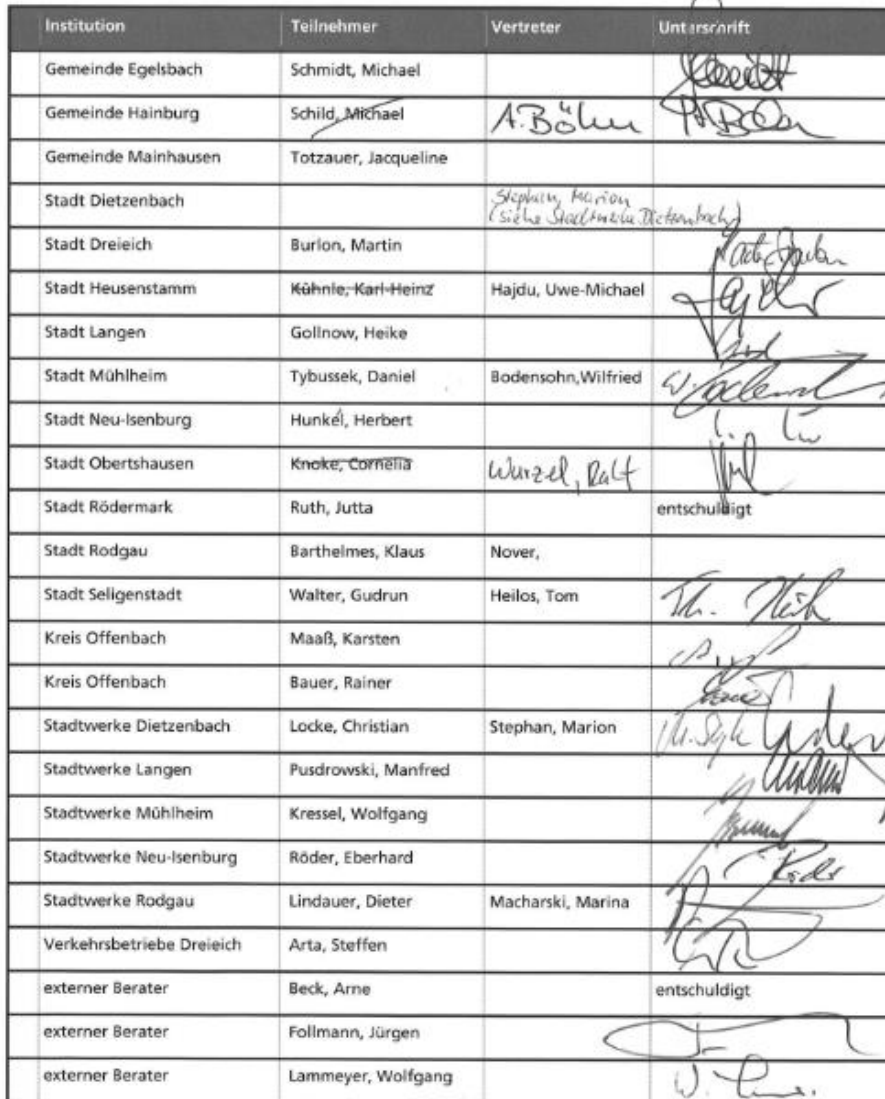 Institution Teilnehmer Vertreter Unterschrift
Gemeinde Egelsbach Schmidt, Michael
Gemeinde Hainburg Schild, Michael A. Böhm
Gemeinde Mainhausen Totzauer, Jacqueline
Stadt Dietzenbach Stephan, Marion
(siehe Stadtwerke Dietzenbach)
Stadt Dreieich Burlon, Martin
Stadt Heusenstamm Kühnle, Karl-Heinz Hajdu, Uwe-Michael
Stadt Langen Gollnow, Heike
Stadt Mühlheim Tybussek, Daniel Bodensohn,Wilfried
Stadt Neu-Isenburg Hunkel, Herbert
Stadt Obertshausen Knoke, Cornelia Wurzel, Ralf
Stadt Rödermark Ruth, Jutta entschuldigt
Stadt Rodgau Barthelmes, Klaus Nover,
Stadt Seligenstadt Walter, Gudrun Heilos, Tom
Kreis Offenbach Maaß, Karsten
Kreis Offenbach Bauer, Rainer
Stadtwerke Dietzenbach Locke, Christian Stephan, Marion
Stadtwerke Langen Pusdrowski, Manfred
Stadtwerke Mühlheim Kressel, Wolfgang
Stadtwerke Neu-Isenburg Röder, Eberhard
Stadtwerke Rodgau Lindauer, Dieter Macharski, Marina
Verkehrsbetriebe Dreieich Arta, Steffen
externer Berater Beck, Arne entschuldigt
externer Berater Follmann, Jürgen
externer Berater Lammeyer, Wolfgang